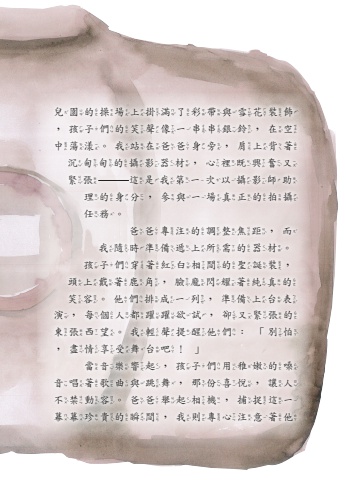 兒園的操場上掛滿了彩帶與雪花裝飾
，孩子們的笑聲像一串串銀鈴，在空
中蕩漾。我站在爸爸身旁，肩上背著
沉甸甸的攝影器材，心裡既興奮又
緊張——這是我第一次以攝影師助
理的身分，參與一場真正的拍攝
任務。
爸爸專注的調整焦距，而
我隨時準備遞上所需的器材。
孩子們穿著紅白相間的聖誕裝，
頭上戴著鹿角，臉龐閃耀著純真的
笑容。他們排成一列，準備上台表
演，每個人都躍躍欲試，卻又緊張的
東張西望。我輕聲提醒他們：「別怕
，盡情享受舞台吧！」
當音樂響起，孩子們用稚嫩的嗓
音唱著歌曲與跳舞，那份喜悅，讓人
不禁動容。爸爸舉起相機，捕捉這一
幕幕珍貴的瞬間，我則專心注意著他